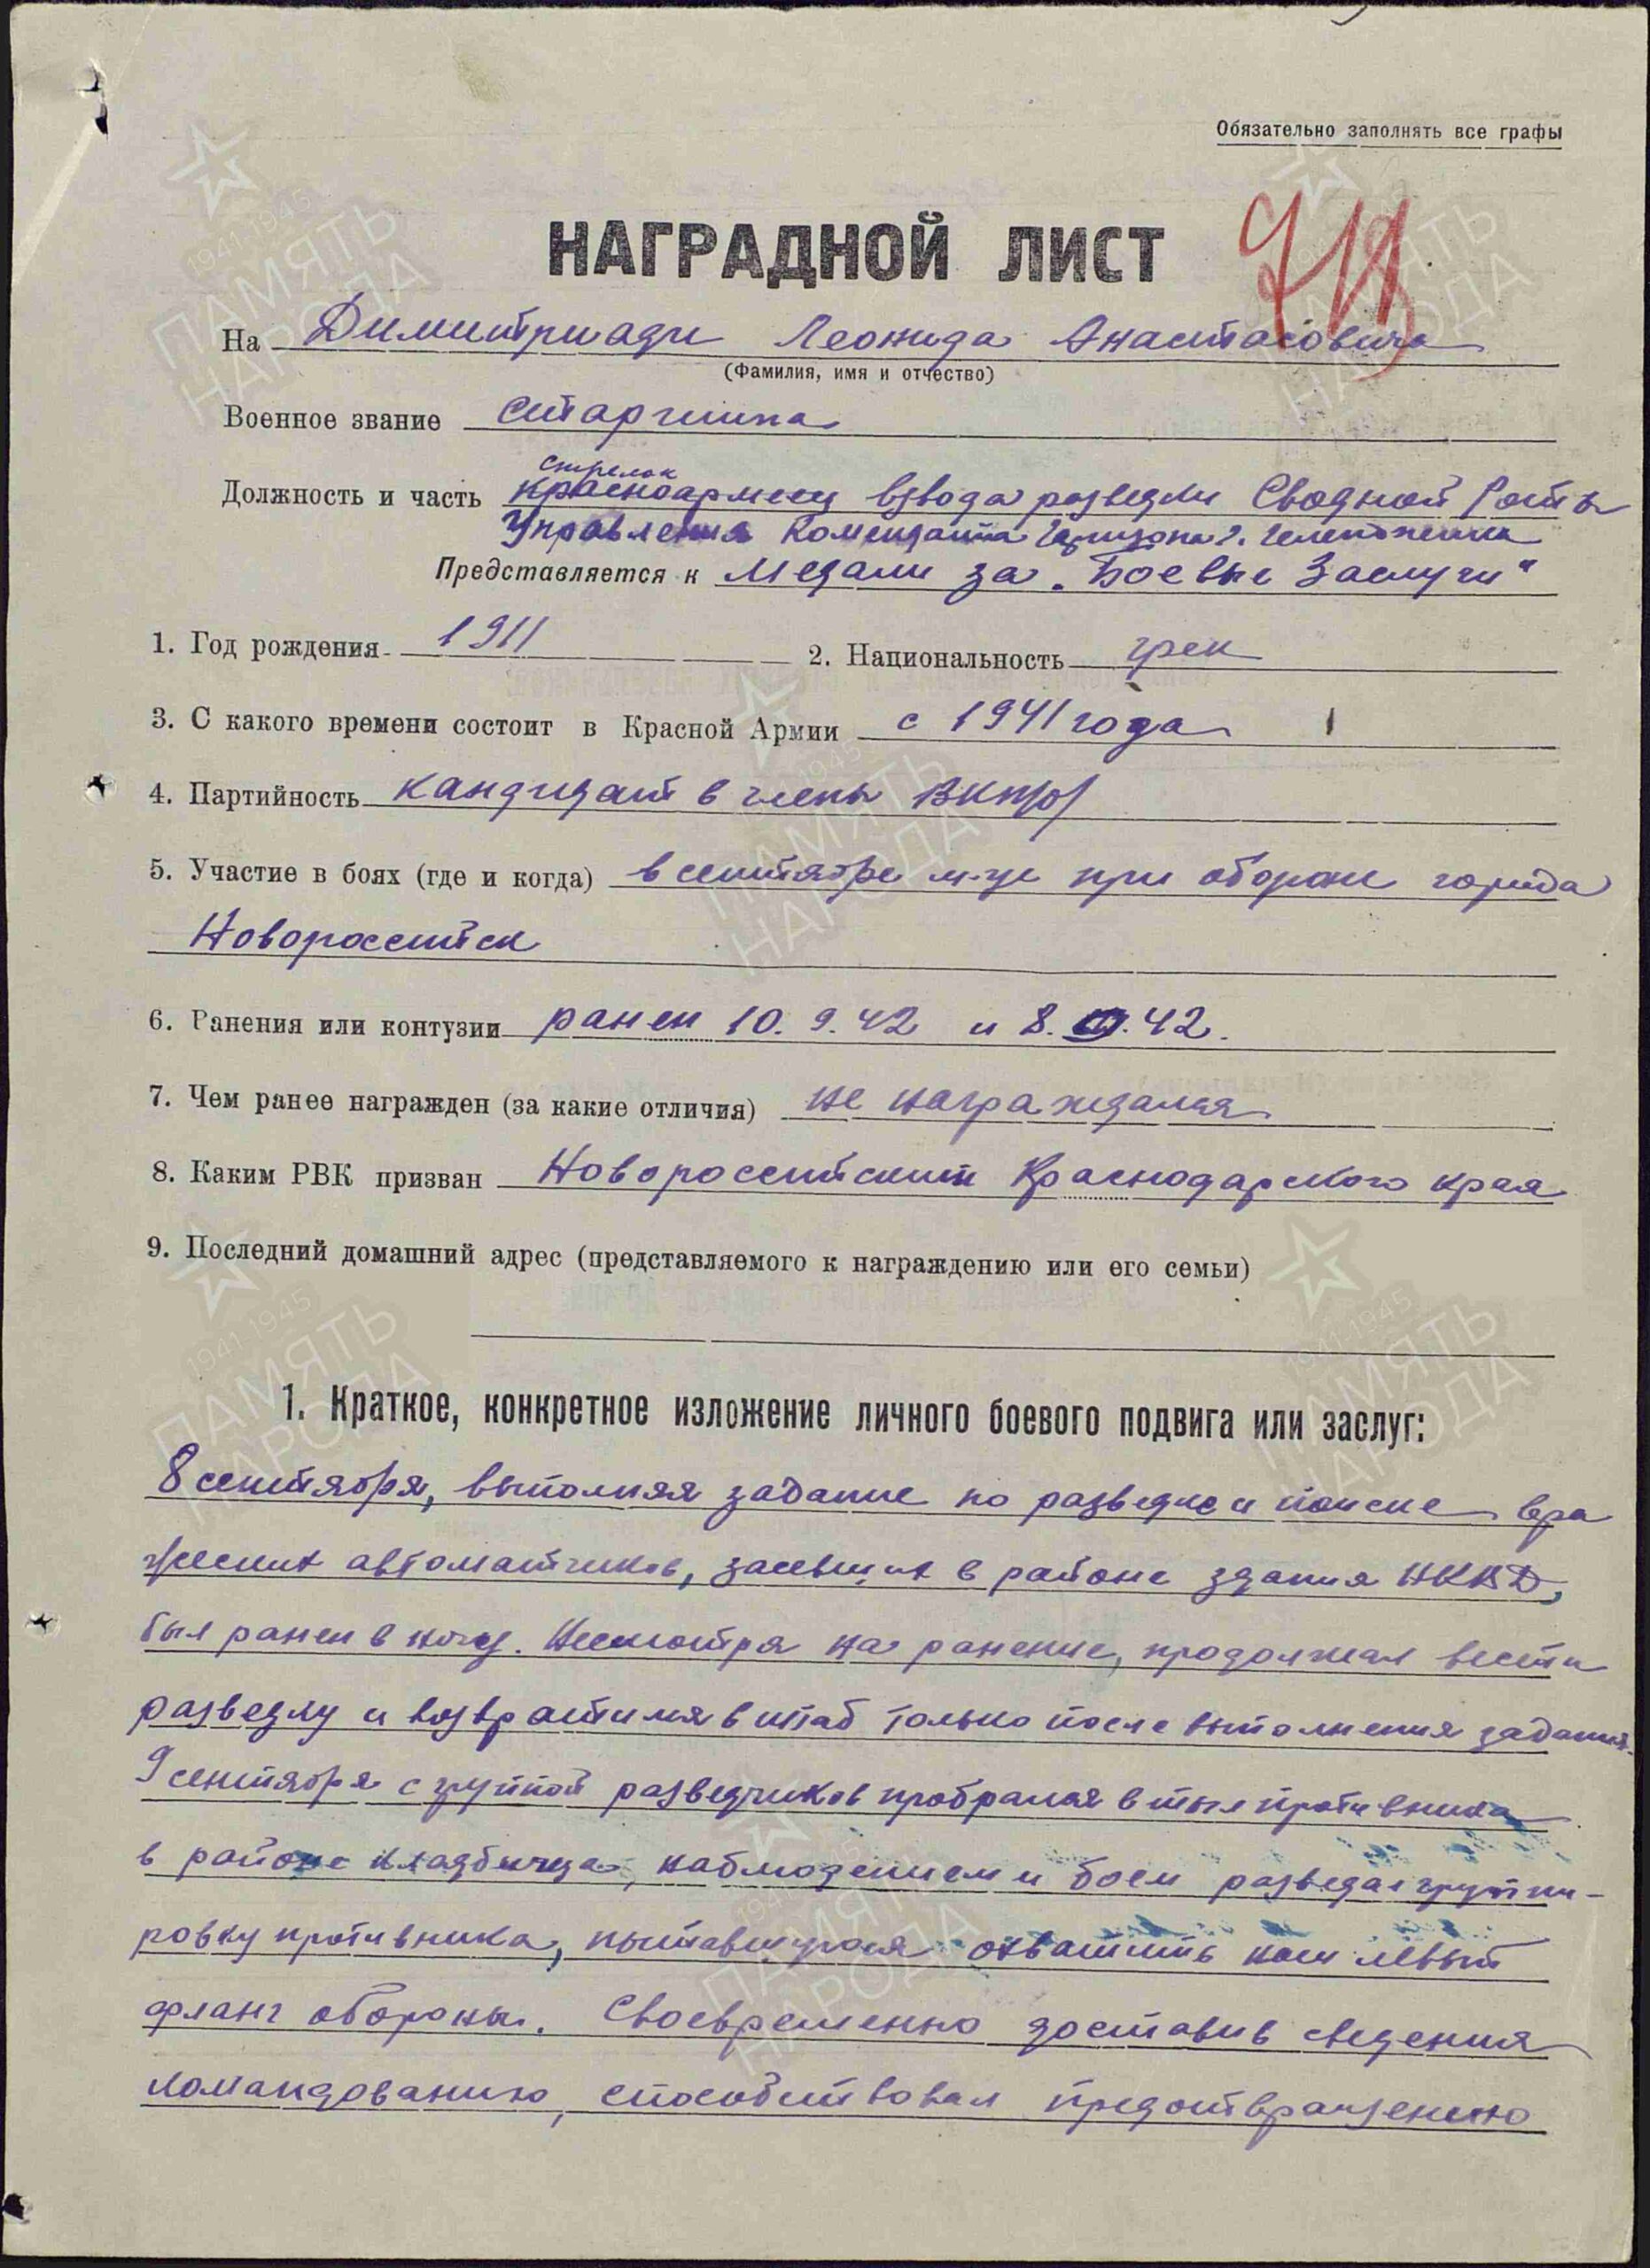 Обязательно заполнять все графы
НАГРАДНОЙ ЛИСТ
На Димитриади Леонида Анастасовича
(Фамилия, имя и отчество)
Военное звание старшина
стрелок
Должность и часть красноармеец взвода разведки Сводной Роты
Управления Коменданта Гарнизона г. Геленджика
Представляется к Медали за „Боевые Заслуги"
1. Год рождения 1911 2. Национальность грек
3. С какого времени состоит в Красной Армии с 1941 года
4. Партийность кандидат в члены ВКП/б/
5. Участие в боях (где и когда) в сентябре м-це при обороне города
Новороссийск
6. Ранения или контузии ранен 10.9.42 и 8. .42.
7. Чем ранее награжден (за какие отличия) не награждался
8. Каким РВК призван Новороссийским Краснодарского края
9. Последний домашний адрес (представляемого к награждению или его семьи)
1. Краткое, конкретное изложение личного боевого подвига или заслуг:
8 сентября, выполняя задание по разведке и поиске вра
жеских автоматчиков, засевших в районе здания НКВД,
был ранен в ногу. Несмотря на ранение, продолжал вести
разведку и возвратился в штаб только после выполнения задания.
9 сентября с группой разведчиков пробрался в тыл противника
в районе кладбища, наблюдением и боем разведал группи-
ровку противника, пытавшуюся охватить наш левый
фланг обороны. Своевременно доставив сведения
командованию, способствовал предотвращению
ПАМЯТЬ
НАРОДА
1941-1945